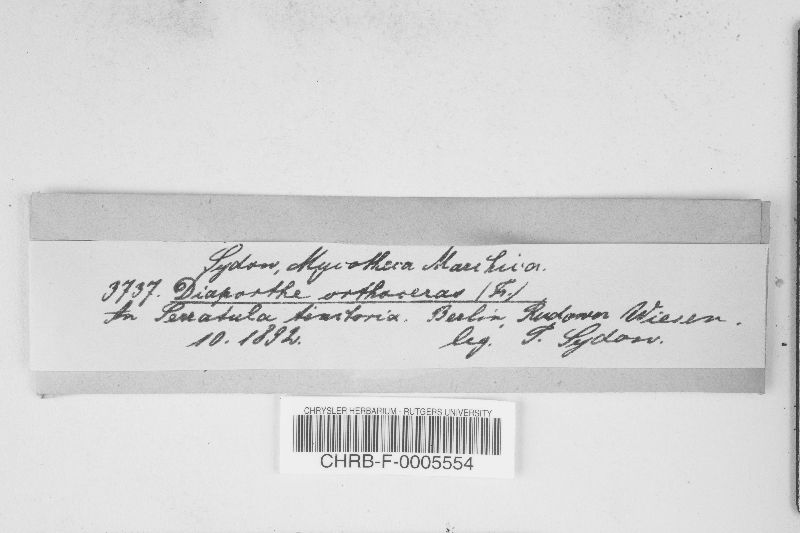 Sydow, Mycotheca Marchica.
3737. Diaporthe orthoceras (Fr.)
An Serratula tinctoria. Berlin, Rudower Wiesen.
10. 1892. leg. P. Sydow.
CHRYSLER HERBARIUM - RUTGERS UNIVERSITY
CHRB-F-0005554